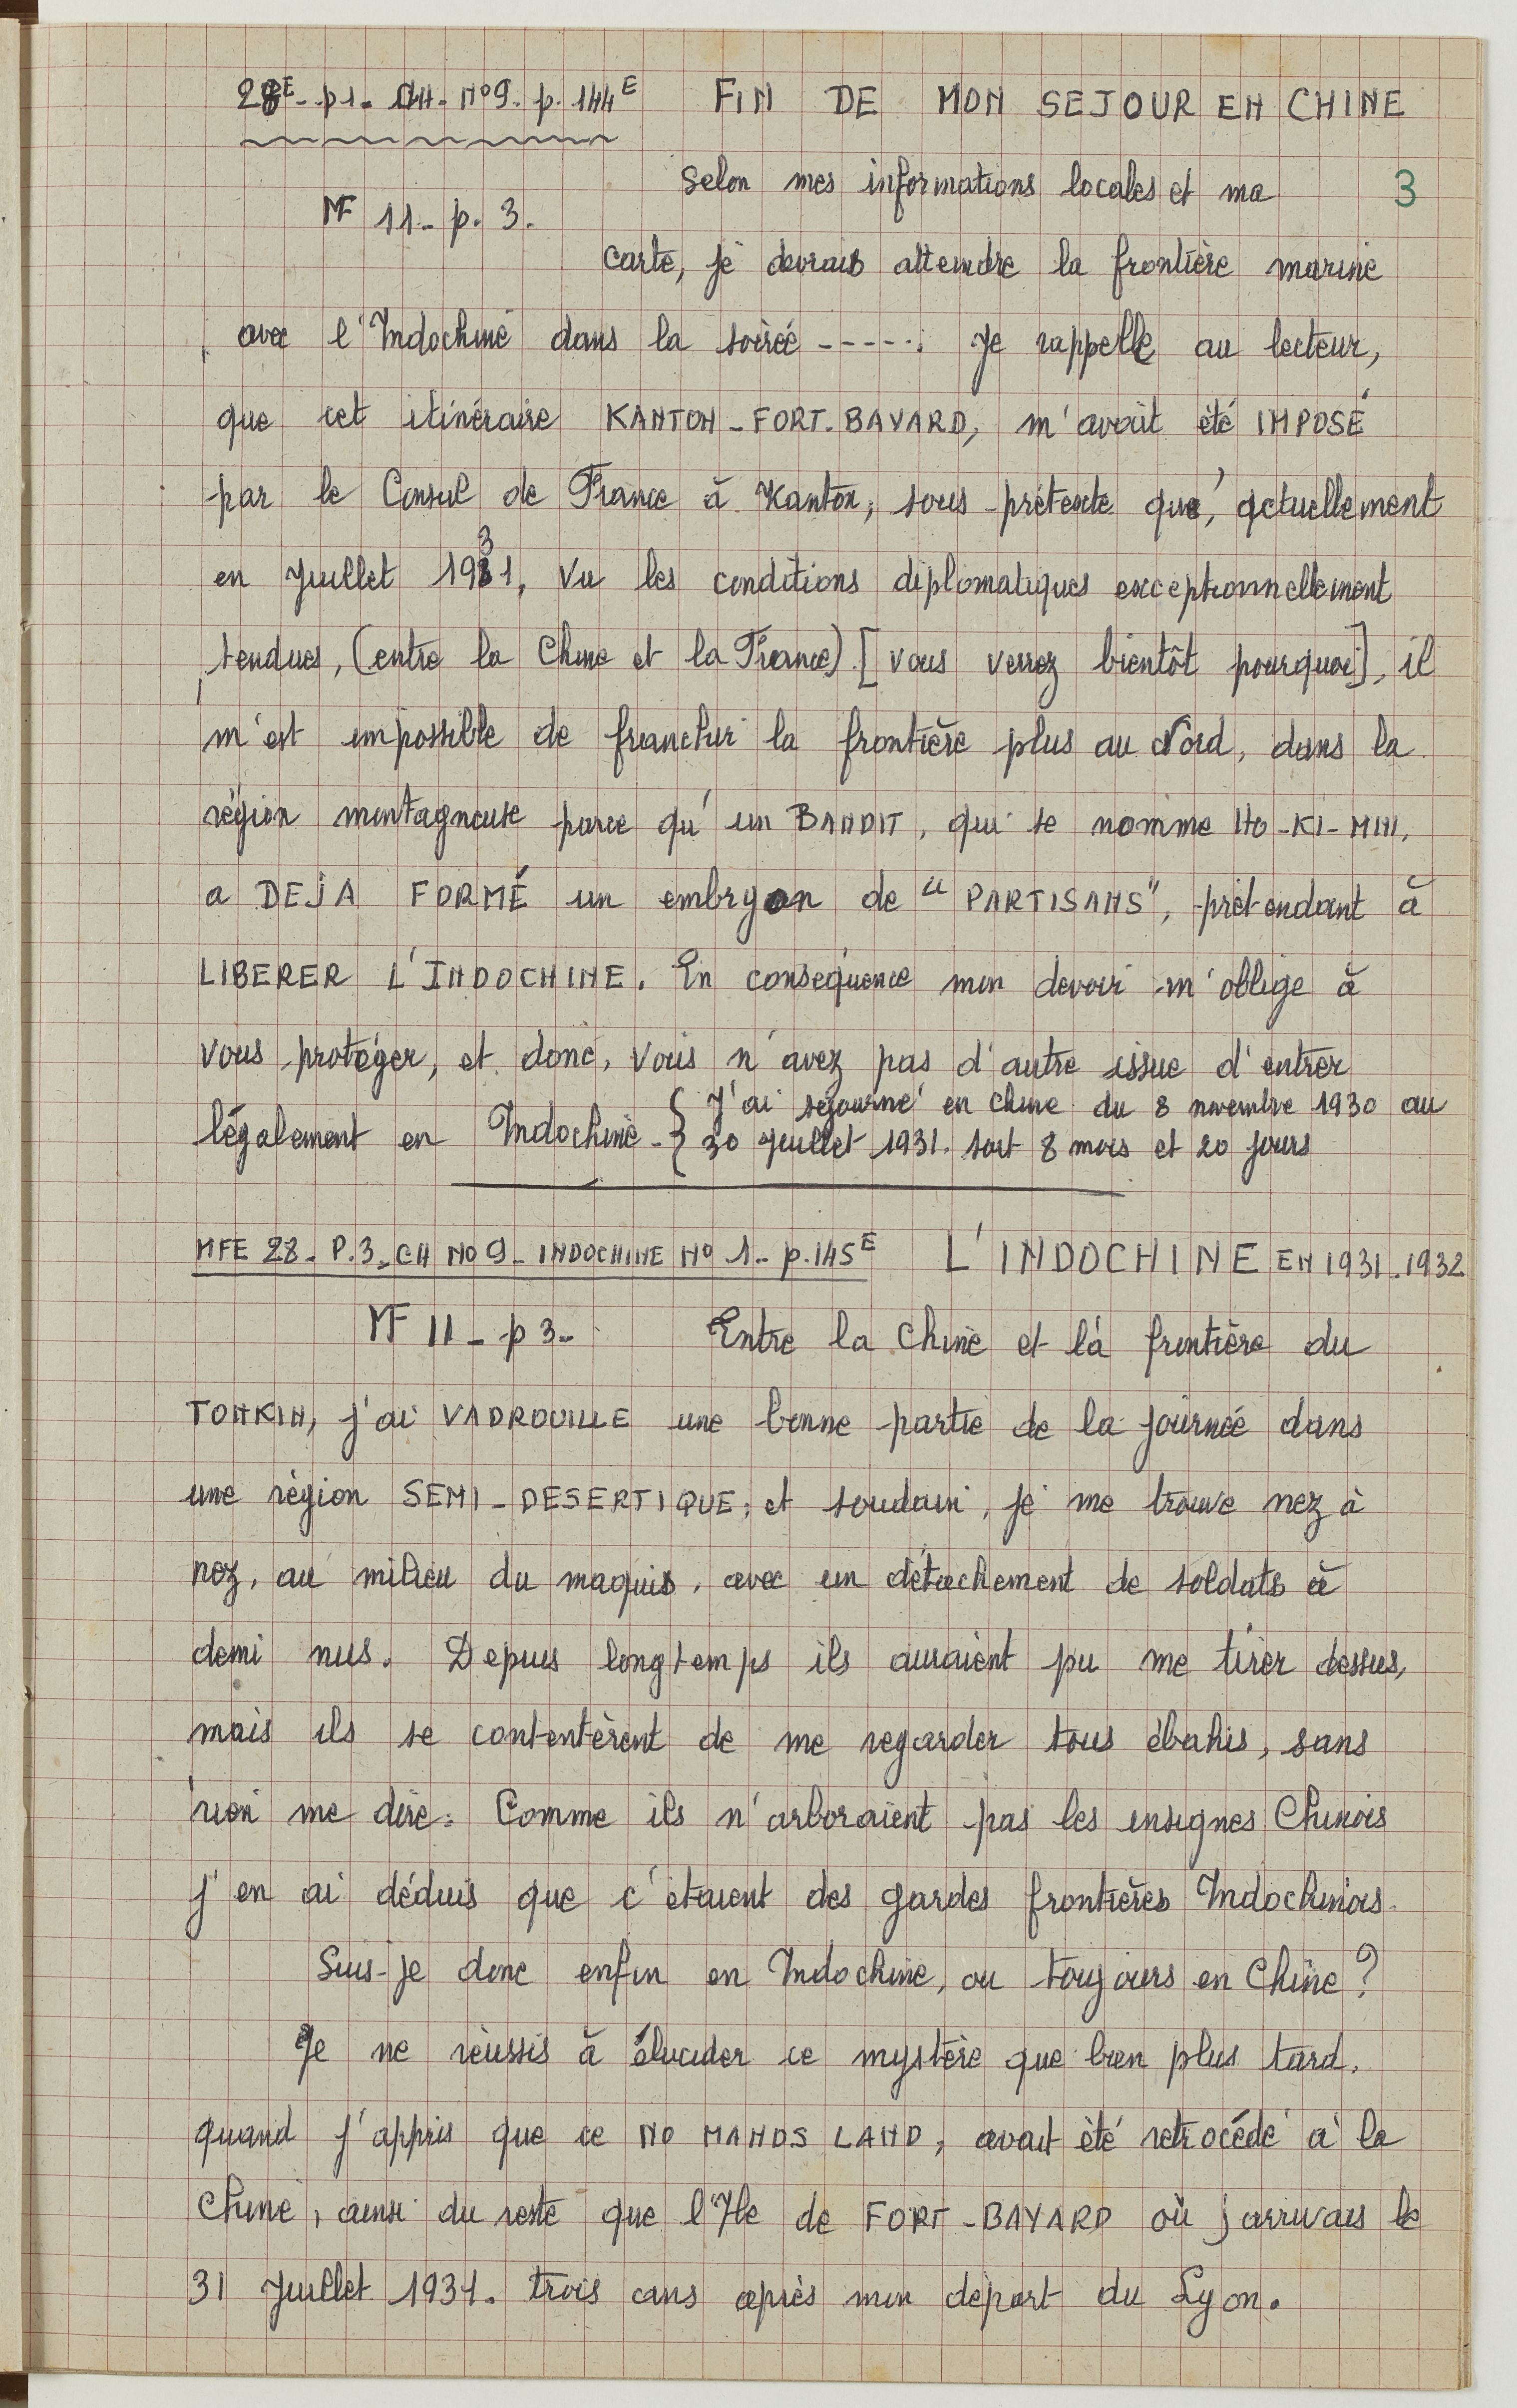 28E- p1- CH- No9- p. 144E FIN DE MON SEJOUR EN CHINE
Selon mes informations locales et ma 3
MF 11- p. 3.
carte, je devrais atteindre la frontière marine
avec l'Indochine dans la soirée -----. Je rappelle au lecteur,
que cet itinéraire KANTON-FORT-BAYARD, m'avait été IMPOSÉ
par le Consul de France à Kanton, sous prétexte que, actuellement
en Juillet 1931, Vu les conditions diplomatiques exceptionnellement
tendues, (entre la Chine et la France) [vous verrez bientôt pourquoi], il
m'est impossible de franchir la frontière plus au Nord, dans la
région montagneuse parce qu'un BANDIT, qui se nomme HO-KI-MIN,
a DEJA FORMÉ un embryon de "PARTISANS", prétendant à
LIBERER L'INDOCHINE. En conséquence mon devoir m'oblige à
vous protéger, et donc, vous n'avez pas d'autre issue d'entrer
légalement en Indochine- { J'ai séjourné en Chine du 8 novembre 1930 au
30 Juillet 1931. soit 8 mois et 20 jours
MFE 28- P.3- CH No 9- INDOCHINE No 1- p.145E L'INDOCHINE EN 1931.1932
MF 11- p 3- Entre la Chine et la frontière du
TONKIN, j'ai VADROUILLE une bonne partie de la journée dans
une région SEMI-DESERTIQUE; et soudain, je me trouve nez à
nez, au milieu du maquis, avec un détachement de soldats à
demi nus. Depuis longtemps ils auraient pu me tirer dessus,
mais ils se contentèrent de me regarder tous ébahis, sans
rien me dire. Comme ils n'arboraient pas les ensignes Chinois
j'en ai déduis que c'étaient des gardes frontières Indochinois.
Suis-je donc enfin en Indochine, ou toujours en Chine?
Je ne réussis à élucider ce mystère que bien plus tard,
quand j'appris que ce NO MANDS LAND, avait été retrocédé à la
Chine, ainsi du reste que l'Ile de FORT-BAYARD où j'arrivais le
31 Juillet 1931. trois ans après mon départ du Lyon.